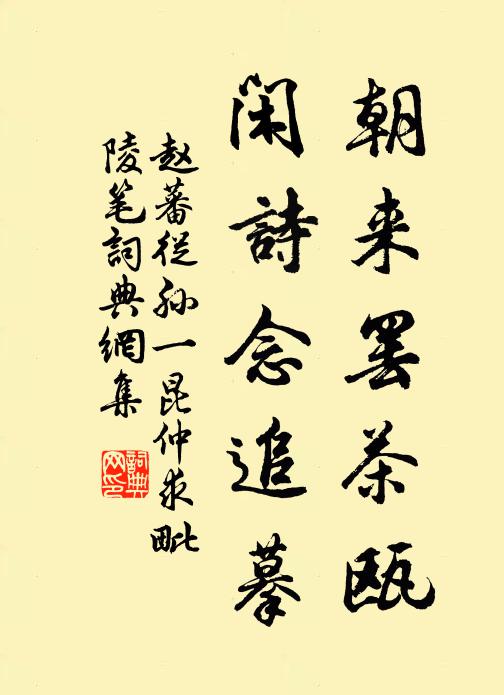 朝来罢茶瓯
闲詩念追摹
赵蕃從孙一昆仲求毗
陵笔詞典網集
詞典网印